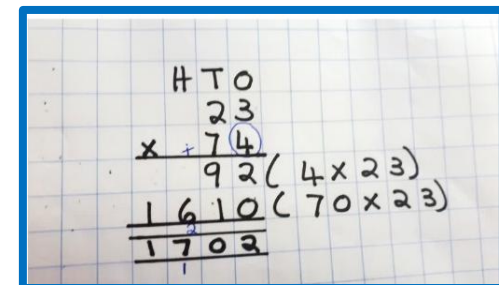 H T O
2 3
x + 7 4
9 2 ( 4 x 2 3 )
1 6 1 0 ( 7 0 x 2 3 )
2
1 7 0 2
1